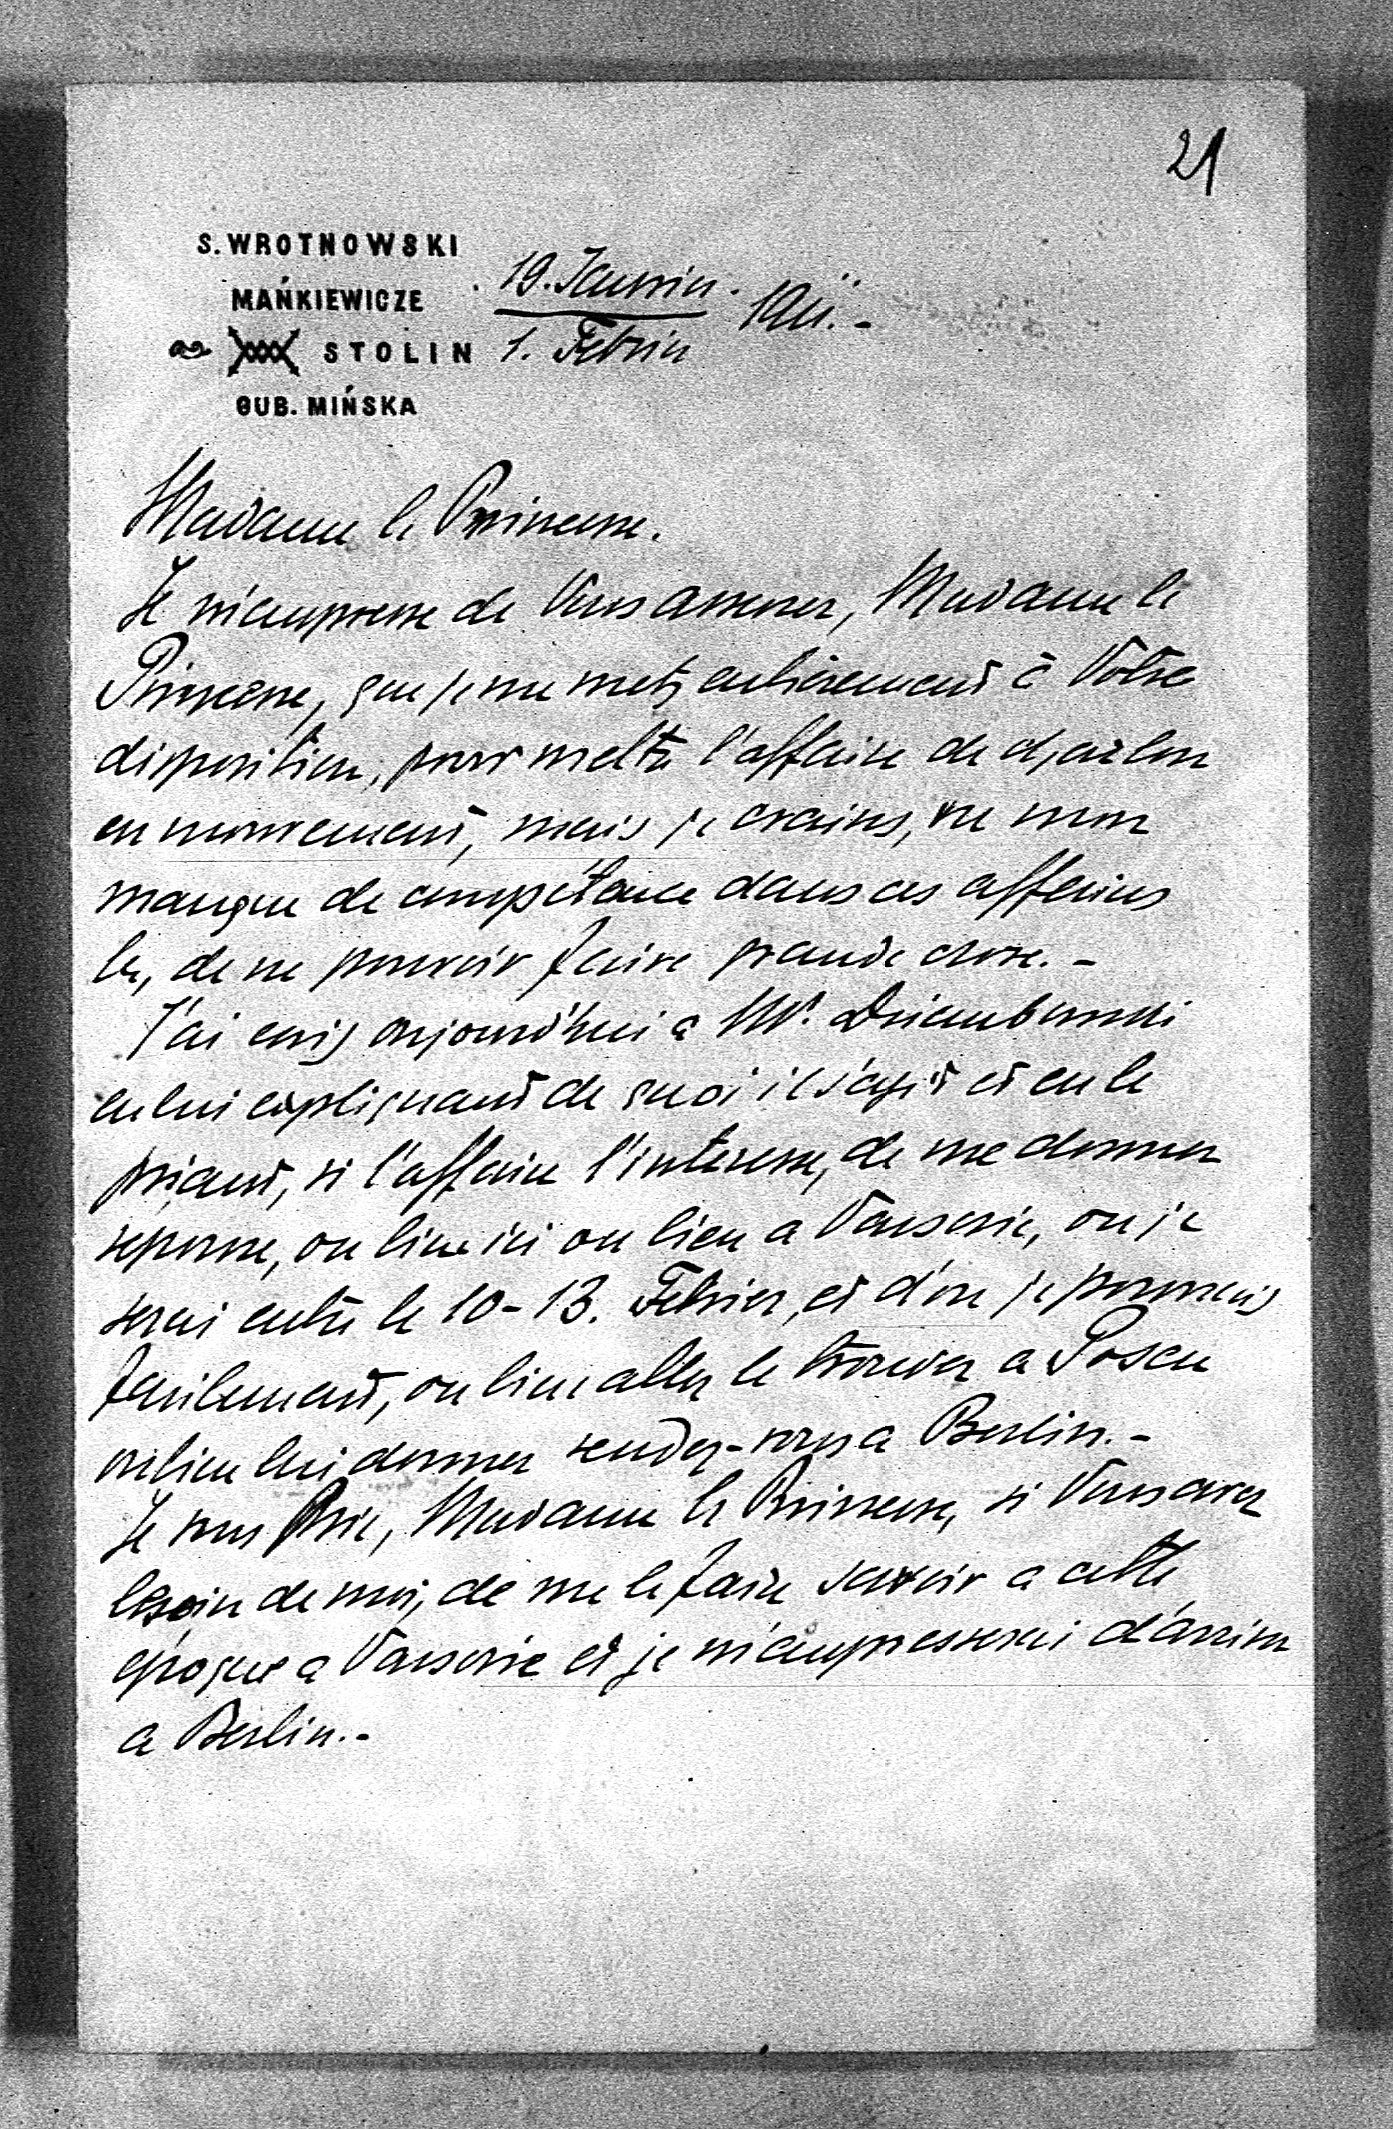 21
S. WROTNOWSKI
MAŃKIEWICZE
STOLIN
GUB. MIŃSKA
19. Janvier
1. Febrier 1911.-
Madame la Princesse.
Je m'empresse de Vous assurer, Madame la
Princesse, que je me mets entièrement à Votre
disposition, pour mettre l'affaire de
en mouvement, mais je crains, vu mon
manque de compétance dans ces affaires
la, de ne pouvoir faire grande chose.-
J'ai ecris aujourd'hui a Mr. Dziembowski
en lui expliquant de quoi il s'agit et en le
priant, si l'affaire l'interesse, de me donner
reponse, ou bien ici ou bien a Varsovie, ou je
serai entre le 10-13. Febrier, et d'ou je pourrais
facilement, ou bien aller le trouver a Posen
ou bien lui donner rendez-vous a Berlin.-
Je vous prie, Madame la Princesse, si Vous avez
besoin de moi, de me le faire savoir a cette
époque a Varsovie et je m'empresserai d'arriver
a Berlin.-